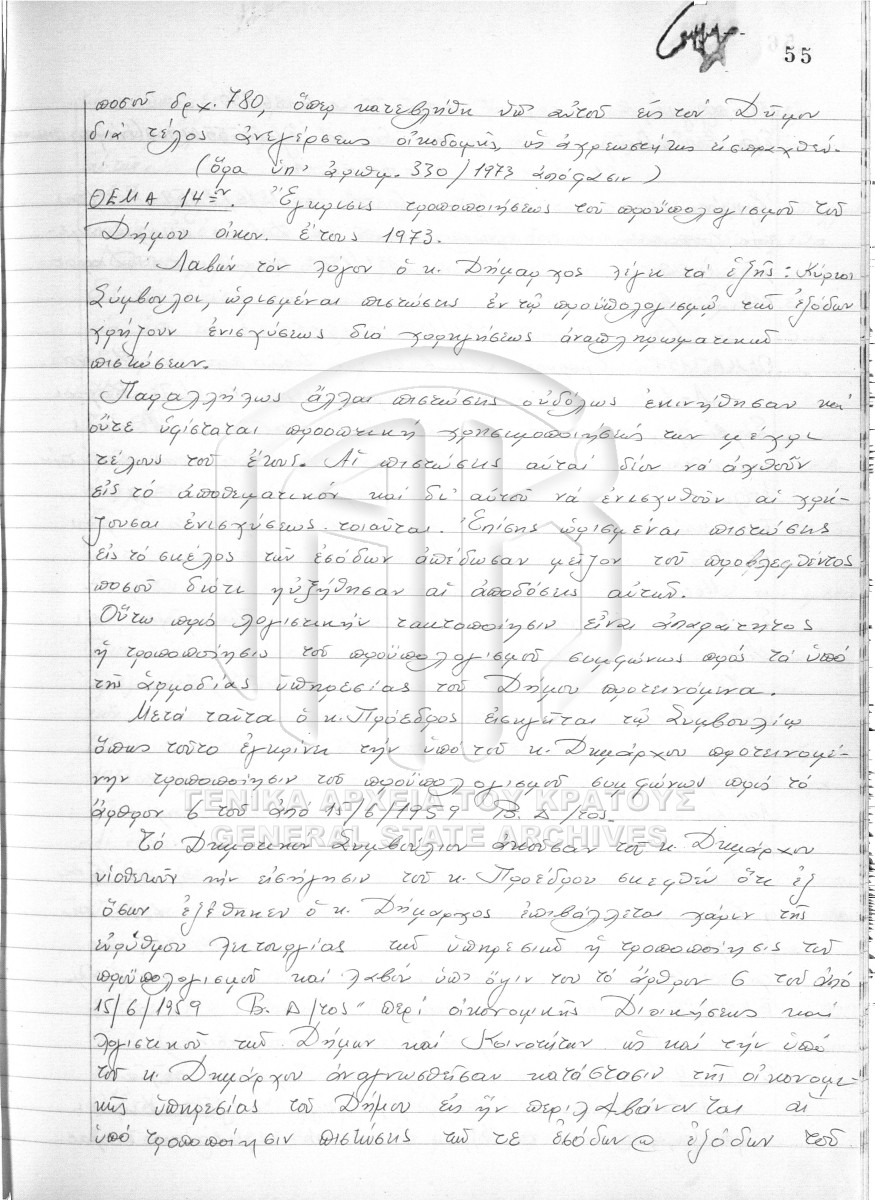 55
ποσοῦ δρχ. 780, ὅπερ κατεβλήθη ὑπ' αὐτοῦ εἰς τόν Δῆμον
διά τέλος ἀνεγέρσεως οἰκοδομῆς, ὡς ἀχρεωστήτως εἰσπραχθέν.
(ὅρα ὑπ' ἀριθμ. 330/1973 ἀπόφασιν)
ΘΕΜΑ 14ον. Ἔγκρισις τροποποιήσεως τοῦ προϋπολογισμοῦ τοῦ
Δήμου οἰκον. ἔτους 1973.
Λαβών τόν λόγον ὁ κ. Δήμαρχος λέγει τά ἑξῆς: Κύριοι
Σύμβουλοι, ὡρισμέναι πιστώσεις ἐν τῷ προϋπολογισμῷ τῶν ἐξόδων
χρήζουν ἐνισχύσεως διά χορηγήσεως ἀναπληρωματικῶν
πιστώσεων.
Παραλλήλως ἄλλαι πιστώσεις οὐδόλως ἐκινήθησαν καί
οὔτε ὑφίσταται προοπτική χρησιμοποιήσεώς των μέχρι
τέλους τοῦ ἔτους. Αἱ πιστώσεις αὐταί δέον νά ἀχθοῦν
εἰς τό ἀποθεματικόν καί δι' αὐτοῦ νά ἐνισχυθοῦν αἱ χρή-
ζουσαι ἐνισχύσεως τοιαῦται. Ἐπίσης ὡρισμέναι πιστώσεις
εἰς τό σκέλος τῶν ἐσόδων ἀπέδωσαν μεῖζον τοῦ προβλεφθέντος
ποσοῦ διότι ηὐξήθησαν αἱ ἀποδόσεις αὐτῶν.
Οὕτω πρός λογιστικήν τακτοποίησιν εἶναι ἀπαραίτητος
ἡ τροποποίησις τοῦ προϋπολογισμοῦ συμφώνως πρός τά ὑπό
τῆς ἁρμοδίας ὑπηρεσίας τοῦ Δήμου προτεινόμενα.
Μετά ταῦτα ὁ κ. Πρόεδρος εἰσηγεῖται τῷ Συμβουλίῳ
ὅπως τοῦτο ἐγκρίνῃ τήν ὑπό τοῦ κ. Δημάρχου προτεινομέ-
νην τροποποίησιν τοῦ προϋπολογισμοῦ συμφώνως πρός τό
ἄρθρον 6 τοῦ ἀπό 15/6/1959 Β.Δ/τος.
ΓΕΝΙΚΑ ΑΡΧΕΙΑ ΤΟΥ ΚΡΑΤΟΥΣ
GENERAL STATE ARCHIVES
Τό Δημοτικόν Συμβούλιον ἀκοῦσαν τοῦ κ. Δημάρχου
υἱοθετοῦν τήν εἰσήγησιν τοῦ κ. Προέδρου σκεφθέν ὅτι ἐξ
ὅσων ἐξέθηκεν ὁ κ. Δήμαρχος ἐπιβάλλεται χάριν τῆς
εὐρύθμου λειτουργίας τῶν ὑπηρεσιῶν ἡ τροποποίησις τοῦ
προϋπολογισμοῦ καί λαβόν ὑπ' ὄψιν του τό ἄρθρον 6 τοῦ ἀπό
15/6/1959 Β.Δ/τος "περί οἰκονομικῆς Διοικήσεως καί
λογιστικοῦ τῶν Δήμων καί Κοινοτήτων ὡς καί τήν ὑπό
τοῦ κ. Δημάρχου ἀναγνωσθεῖσαν κατάστασιν τῆς οἰκονομι-
κῆς ὑπηρεσίας τοῦ Δήμου εἰς ἥν περιλαβάνονται αἱ
ὑπό τροποποίησιν πιστώσεις τῶν τε ἐσόδων @ ἐξόδων τοῦ